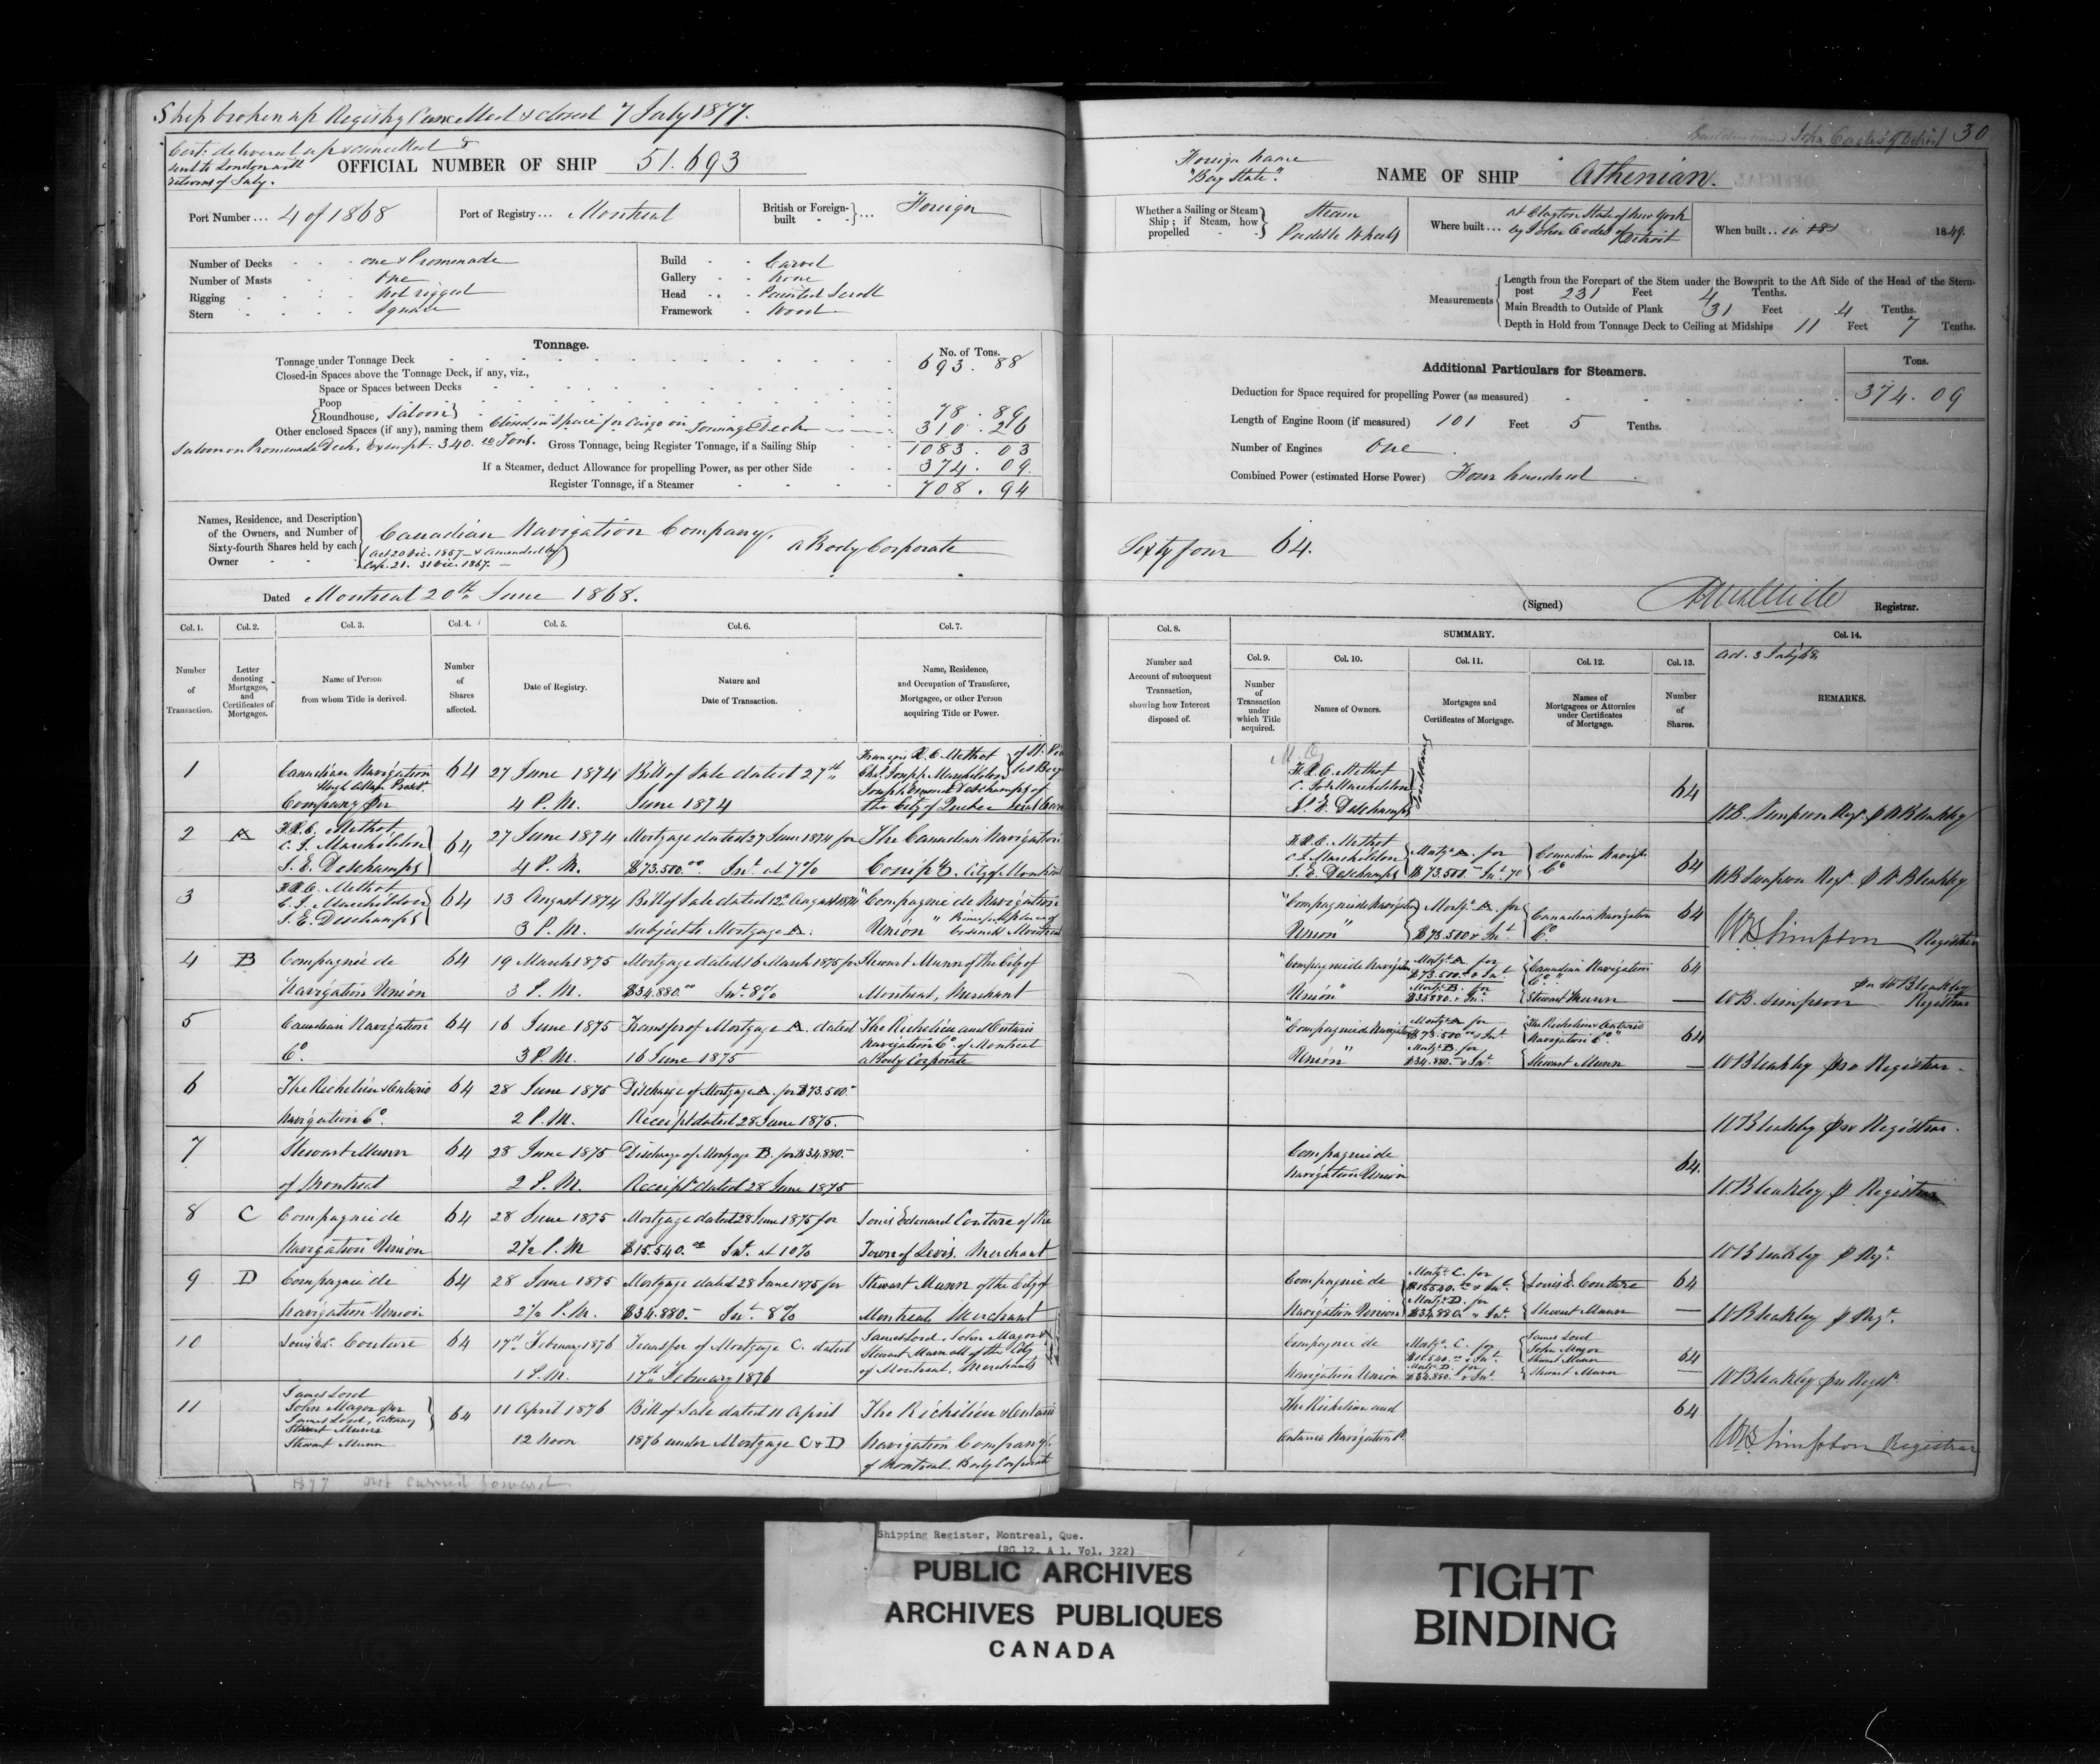 Ship broken up Registry Cancelled & closed 7 July 1877.
Cert: delivered up & cancelled &
sent to London with
returns of July.
OFFICIAL NUMBER OF SHIP 51.693
Port Number ... 4 of 1868
Port of Registry ... Montreal
British or Foreign-built ... Foreign
Number of Decks one & Promenade
Number of Masts One
Rigging not rigged
Stern Square
Build Carvel
Gallery None
Head Painted Scroll
Framework Wood
Tonnage.
No. of Tons.
Tonnage under Tonnage Deck 693.88
Closed-in Spaces above the Tonnage Deck, if any, viz.,
Space or Spaces between Decks
Poop
Roundhouse, Saloon 78.89
Other enclosed Spaces (if any), naming them Closed in Space for Cargo on Tonnage Deck 310.26
Saloon on Promenade Deck, Exempt. 340. Tons. Gross Tonnage, being Register Tonnage, if a Sailing Ship 1083.03
If a Steamer, deduct Allowance for propelling Power, as per other Side 374.09.
Register Tonnage, if a Steamer 708.94
Names, Residence, and Description of the Owners, and Number of Sixty-fourth Shares held by each Owner
Canadian Navigation Company,
(Act 20 Vic. 1857 & amended by
Cap. 21. 31 Vic. 1867.)
a Body Corporate
Dated Montreal 20th June 1868.
John Oades of Detroit 30
Foreign name
"Bay State".
NAME OF SHIP Athenian.
Whether a Sailing or Steam Ship; if Steam, how propelled
Steam
Paddle Wheels
Where built ... at Clayton State of New York
by John Oades of Detroit
When built .. in 1849.
Measurements
Length from the Forepart of the Stem under the Bowsprit to the Aft Side of the Head of the Stern-
post 231 Feet 4 Tenths.
Main Breadth to Outside of Plank 31 Feet 4 Tenths.
Depth in Hold from Tonnage Deck to Ceiling at Midships 11 Feet 7 Tenths.
Additional Particulars for Steamers.
Tons.
Deduction for Space required for propelling Power (as measured) 374.09
Length of Engine Room (if measured) 101 Feet 5 Tenths.
Number of Engines One
Combined Power (estimated Horse Power) Four hundred
Sixty four 64.
(Signed) Registrar.
Col. 1. Number of Transaction.
Col. 2. Letter denoting Mortgages, and Certificates of Mortgages.
Col. 3. Name of Person from whom Title is derived.
Col. 4. Number of Shares affected.
Col. 5. Date of Registry.
Col. 6. Nature and Date of Transaction.
Col. 7. Name, Residence, and Occupation of Transferee, Mortgagee, or other Person acquiring Title or Power.
Col. 8. Number and Account of subsequent Transaction, showing how Interest disposed of.
SUMMARY.
Col. 9. Number of Transaction under which Title acquired.
Col. 10. Names of Owners.
Col. 11. Mortgages and Certificates of Mortgage.
Col. 12. Names of Mortgagees or Attornies under Certificates of Mortgage.
Col. 13. Number of Shares.
Col. 14.
ad. 3 July 68
REMARKS.
1 Canadian Navigation Company per Hugh Allan Presdt. 64 27 June 1874 4 P.M. Bill of Sale dated 27th June 1874 François R. E. Methot Chs. Joseph Marchildon of St. Joseph Edmond Deschamps of the City of Quebec
F.R.E. Methot C. Jos. Marchildon J. E. Deschamps 64 WB. Simpson Regr. p WBleakley
2 A F.R.E. Methot, C. J. Marchildon J. E. Deschamps 64 27 June 1874 4 P.M. Mortgage dated 27 June 1874 for $73.500.00 Int. at 7% The Canadian Navigation Compy. City of Montreal
F.R.E. Methot C. J. Marchildon J. E. Deschamps Mortge. A. for $73.500 Int. Canadian Navign. Co. 64 WB Simpson Regr. p WBleakley
3 F.R.E. Methot C. J. Marchildon J. E. Deschamps 64 13 August 1874 3 P.M. Bill of Sale dated 12th August 1874 subject to Mortgage A. "Compagnie de Navigation Union" Principal place of business Montreal
"Compagnie de Navigation Union" Mortge. A. for $73.500 & Int. Canadian Navigation Co. 64 WB Simpson Registrar
4 B Compagnie de Navigation Union 64 19 March 1875 3 P.M. Mortgage dated 16 March 1875 for $34.880.00 Int. 8% Stewart Munn of the City of Montreal, Merchant
"Compagnie de Navigation Union" Mortge. A. for $73.500 & Int. Mortge. B. for $34880 & Int. Canadian Navigation Co. Stewart Munn 64 WB. Simpson Registrar per WBleakley
5 Canadian Navigation Co. 64 16 June 1875 3 P.M. Transfer of Mortgage A. dated 16 June 1875 The Richelieu and Ontario Navigation Co. of Montreal a Body Corporate
"Compagnie de Navigation Union" Mortge. A. for $73.500.00 & Int. Mortge. B. for $34.880. & Int. The Richelieu & Ontario Navigation Co. Stewart Munn 64 WBleakley pro Registrar.
6 The Richelieu & Ontario Navigation Co. 64 28 June 1875 2 P.M. Discharge of Mortgage A. for $73.500. Receipt dated 28 June 1875. WBleakley pro Registrar.
7 Stewart Munn of Montreal 64 28 June 1875 2 P.M. Discharge of Mortgage B. for $34.880. Receipt dated 28 June 1875
Compagnie de Navigation Union 64. WBleakley p Registrar
8 C Compagnie de Navigation Union 64 28 June 1875 2½ P.M. Mortgage dated 28 June 1875 for $15.540.00 Int. at 10% Louis Edouard Couture of the Town of Levis. Merchant WBleakley p Rgr.
9 D Compagnie de Navigation Union 64 28 June 1875 2½ P.M. Mortgage dated 28 June 1875 for $34.880. Int. 8% Stewart Munn of the City of Montreal, Merchant
Compagnie de Navigation Union Mortge. C. for $15540. & Int. Mortge. D. for $34,880. & Int. Louis E. Couture Stewart Munn 64 WBleakley p Regr.
10 Louis Ed. Couture 64 17th February 1876 1 P.M. Transfer of Mortgage C. dated 17th February 1876 James Lord, John Magor & Stewart Munn all of the City of Montreal, Merchants
Compagnie de Navigation Union Mortge. C. for $15.540.00 & Int. Mortge. D. for $34.880. & Int. James Lord John Magor Stewart Munn Stewart Munn 64 WBleakley pro Regstr.
11 James Lord John Magor per James Lord, Attorney Stewart Munn Stewart Munn 64 11 April 1876 12 noon Bill of Sale dated 11 April 1876 under Mortgage C & D The Richelieu & Ontario Navigation Company. of Montreal. Body Corporate
The Richelieu and Ontario Navigation Co. 64 WB Simpson Registrar
1877 not carried forward
Shipping Register, Montreal, Que.
(RG 12, A 1, Vol. 322)
PUBLIC ARCHIVES
ARCHIVES PUBLIQUES
CANADA
TIGHT
BINDING